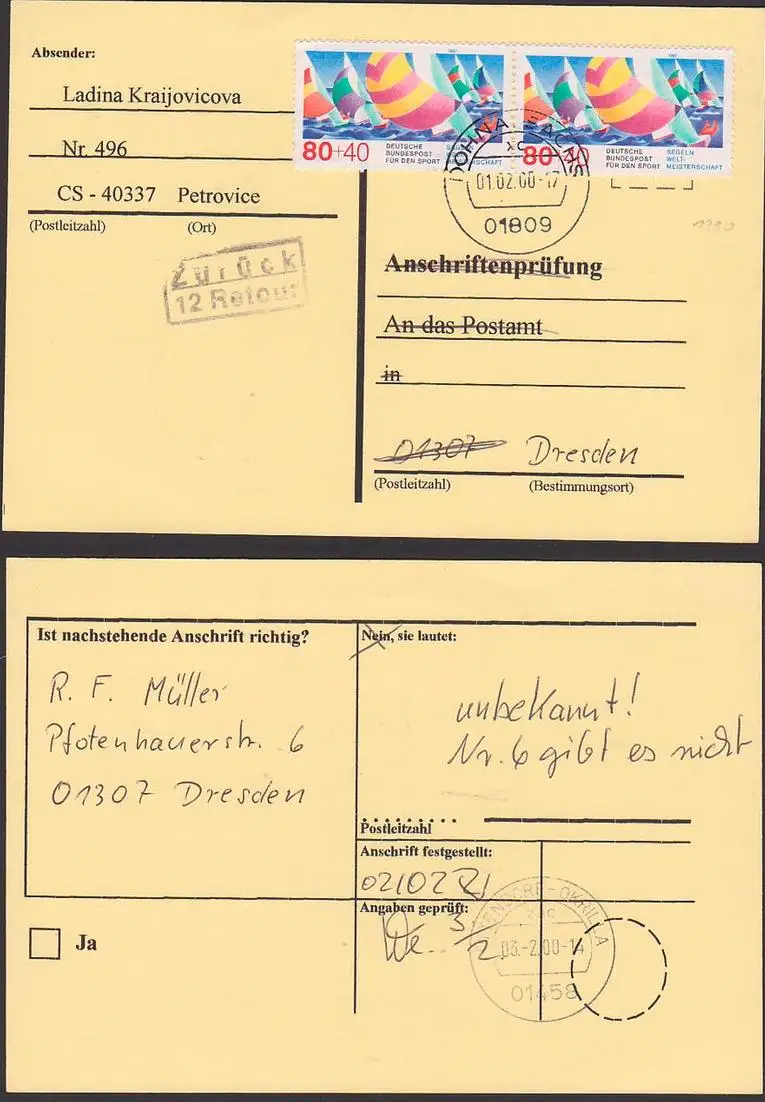 Absender:
Ladina Kraijovicova
Nr. 496
CS - 40337 Petrovice
(Postleitzahl) (Ort)
Zurück
12 Retour
80+40 DEUTSCHE BUNDESPOST FÜR DEN SPORT
1987
80+40 DEUTSCHE BUNDESPOST FÜR DEN SPORT SEGELN WELT- MEISTERSCHAFT
DOHNA
01.02.00-17
01809
Anschriftenprüfung
An das Postamt
in
01307 Dresden
(Postleitzahl) (Bestimmungsort)
Ist nachstehende Anschrift richtig?
R. F. Müller
Pfotenhauerstr. 6
01307 Dresden
Ja
Nein, sie lautet:
unbekannt!
Nr. 6 gibt es nicht
Postleitzahl
Anschrift festgestellt:
Angaben geprüft:
3/2
ENDORF-OKRILLA
03.-2.00-14
01458